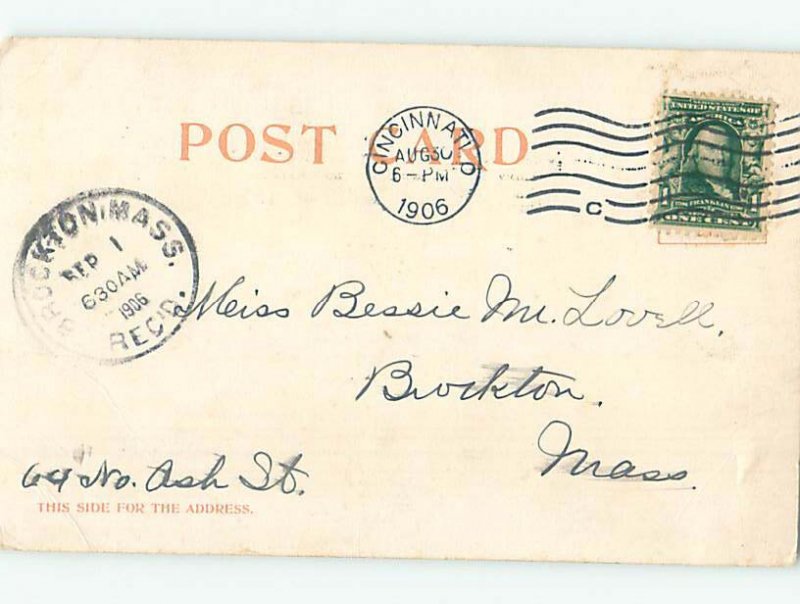 POST CARD
CINCINNATI, O
AUG 30
6-PM
1906
C
SERIES 1902
UNITED STATES OF
AMERICA
FRANKLIN
1 1
ONE CENT
BROCKTON, MASS.
SEP 1
630AM
1906
REC'D.
Miss Bessie M. Lovell,
Brockton,
Mass.
64 No. Ash St.
THIS SIDE FOR THE ADDRESS.